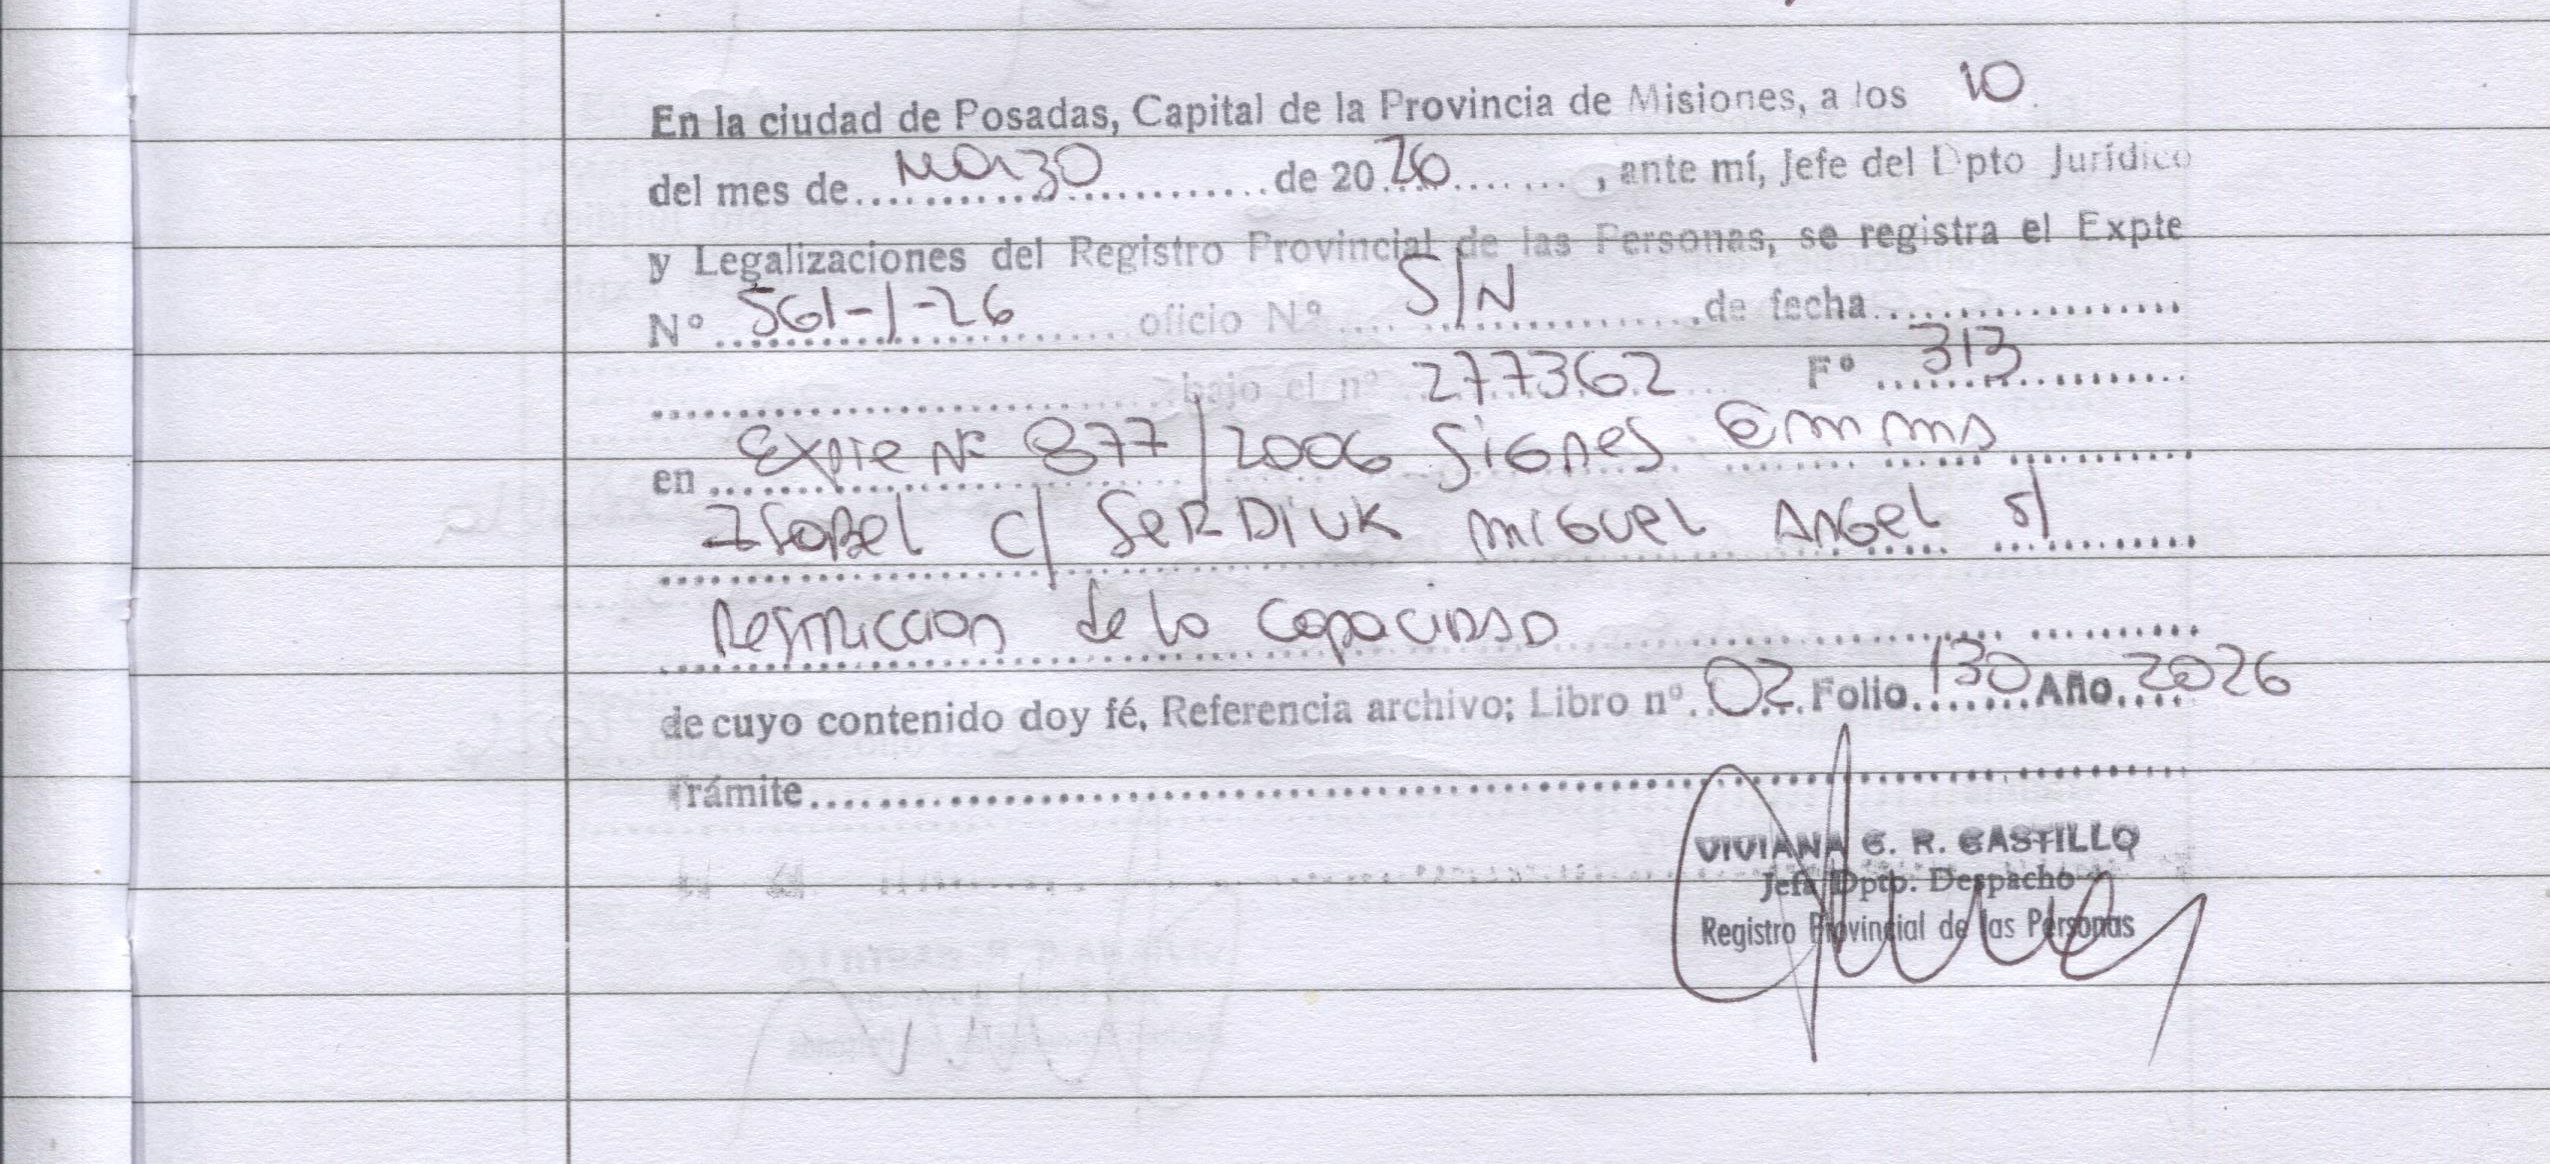 En la ciudad de Posadas, Capital de la Provincia de Misiones, a los 10
del mes de Marzo de 2026, ante mí, Jefe del Dpto Jurídico
y Legalizaciones del Registro Provincial de las Personas, se registra el Expte
Nº 561-1-26 oficio Nº S/N de fecha
bajo el nº 277362 Fº 313
en Expte Nº 877/2006 Signes Emma
Isabel C/ SERDIUK MIGUEL ANGEL S/
Restriccion de la Capacidad
de cuyo contenido doy fé, Referencia archivo; Libro nº 02 Folio 130 Año 2026
Trámite
VIVIANA G. R. CASTILLO
Jefa Dpto. Despacho
Registro Provincial de las Personas